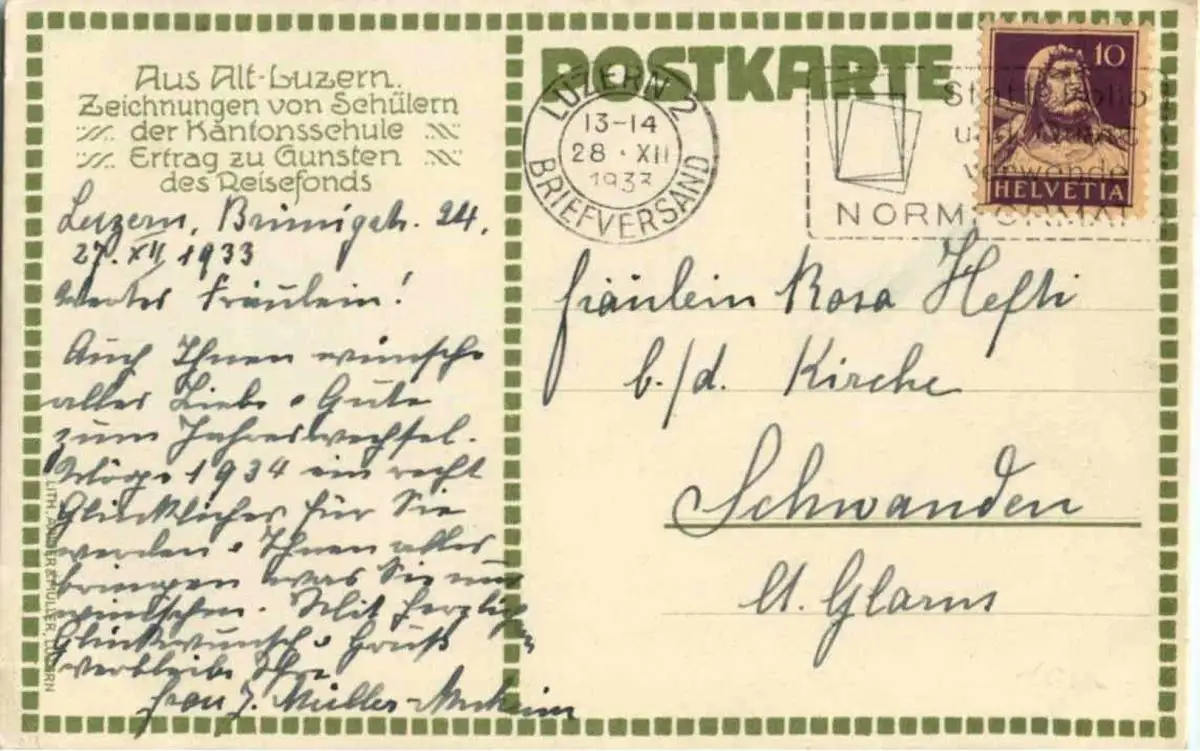 Aus Alt-Luzern.
Zeichnungen von Schülern
der Kantonsschule
Ertrag zu Gunsten
des Reisefonds
Luzern, Brünigstr. 24,
27. XII 1933
Wertes Fräulein!
Auch Ihnen wünsche
alles Liebe & Gute
zum Jahreswechsel.
Möge 1934 ein recht
Glückliches für Sie
werden & Ihnen alles
bringen was Sie nur
wünschen. Mit herzlich
Glückwunsch & Gruß
verbleibe Ihre
Frau J. Müller-
LITH. & MÜLLER, LUZERN
POSTKARTE
LUZERN 2
13-14
28 · XII
1933
BRIEFVERSAND
10
HELVETIA
Statt Folio
und
verwende
NORMFORMAT
Fräulein Rosa Hefti
b./d. Kirche
Schwanden
Ct. Glarus